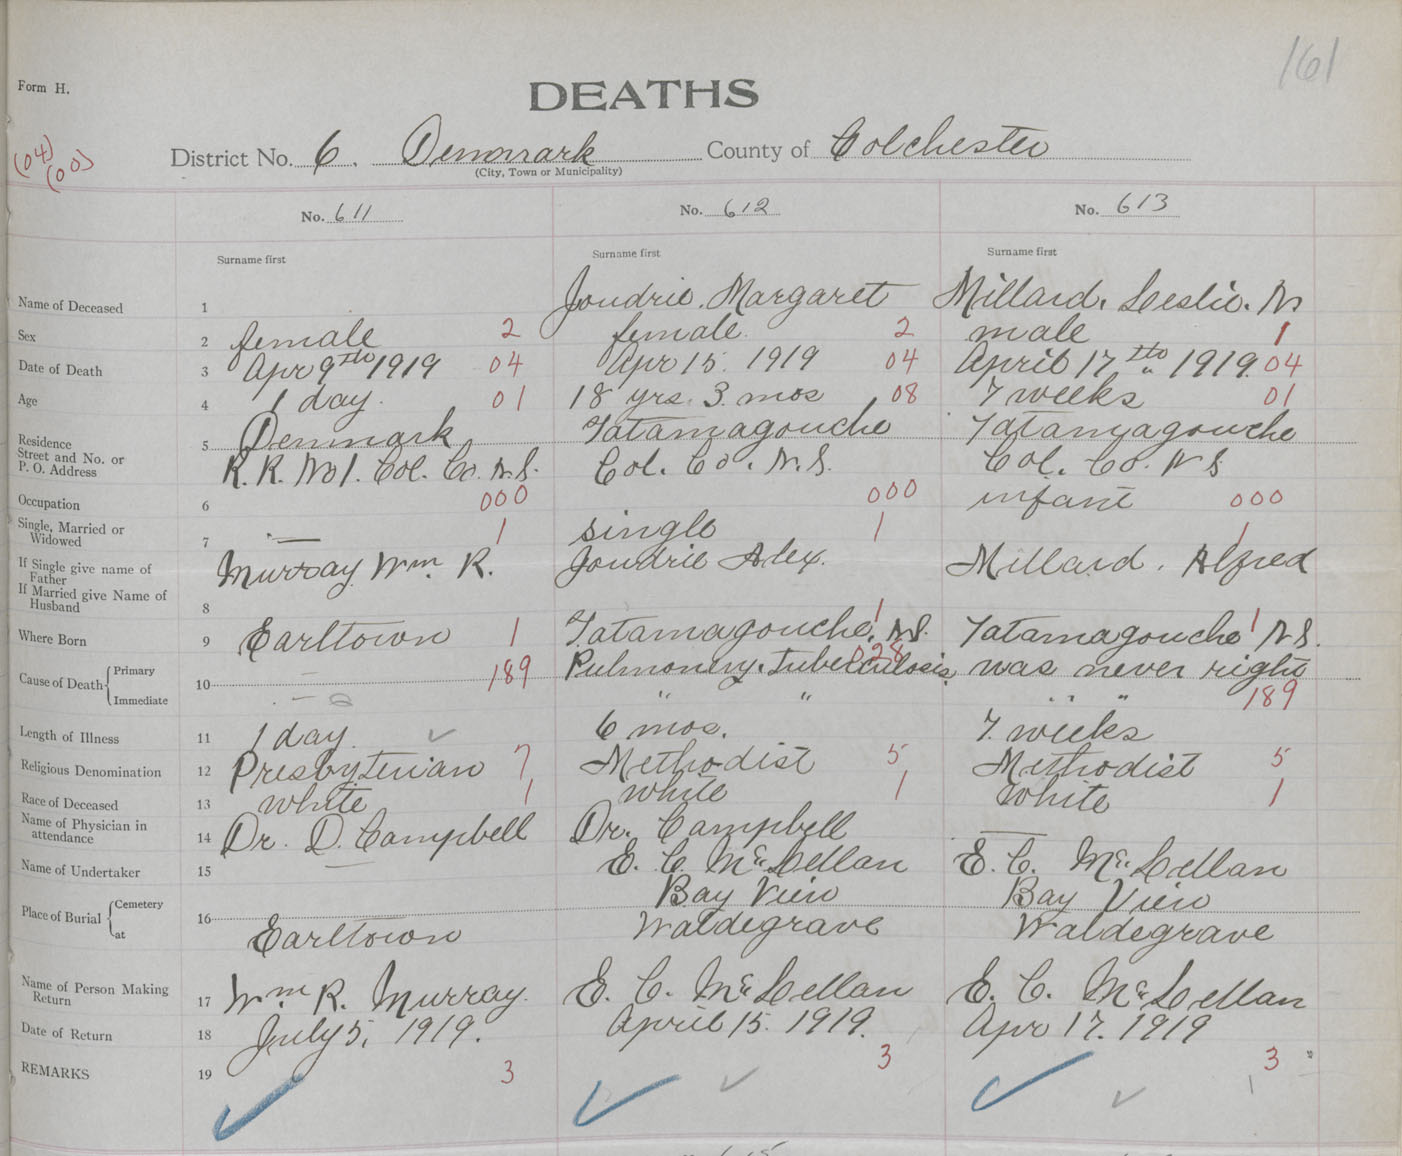 161
Form H.
DEATHS
(04)
(00)
District No. 6. Denmark County of Colchester
(City, Town or Municipality)
No. 611 No. 612 No. 613
Surname first Surname first Surname first
Name of Deceased 1 Joudrie, Margaret Millard, Leslie. N
Sex 2 female 2 female 2 male 1
Date of Death 3 Apr 9th 1919 04 Apr 15. 1919 04 April 17th 1919. 04
Age 4 1 day. 01 18 yrs. 3. mos 08 7 weeks 01
Residence
Street and No. or 5 Denmark Tatamagouche Tatamagouche
P. O. Address R. R. No 1. Col. Co. N.S. Col. Co. N.S. Col. Co. N S
Occupation 6 000 000 infant 000
Single, Married or
Widowed 7 — 1 single 1 1
If Single give name of
Father Murray Wm. R. Joudrie Alex. Millard, Alfred
If Married give Name of
Husband 8
Where Born 9 Earltown 1 Tatamagouche, N.S. 1 Tatamagouche N.S. 1
Cause of Death Primary 10 — 189 Pulmonry Tuberculosis 028 was never right
Immediate — " " " " 189
Length of Illness 11 1 day. 6 mos. 7 weeks
Religious Denomination 12 Presbyterian 7 Methodist 5 Methodist 5
Race of Deceased 13 white 1 white 1 white 1
Name of Physician in
attendance 14 Dr. D. Campbell Dr. Campbell —
Name of Undertaker 15 — E. C. McLellan E. C. McLellan
Place of Burial Cemetery 16 Bay View Bay View
at Earltown Waldegrave Waldegrave
Name of Person Making
Return 17 Wm. R. Murray. E. C. McLellan E. C. McLellan
Date of Return 18 July 5, 1919. April 15. 1919. Apr 17. 1919
REMARKS 19 3 3 3